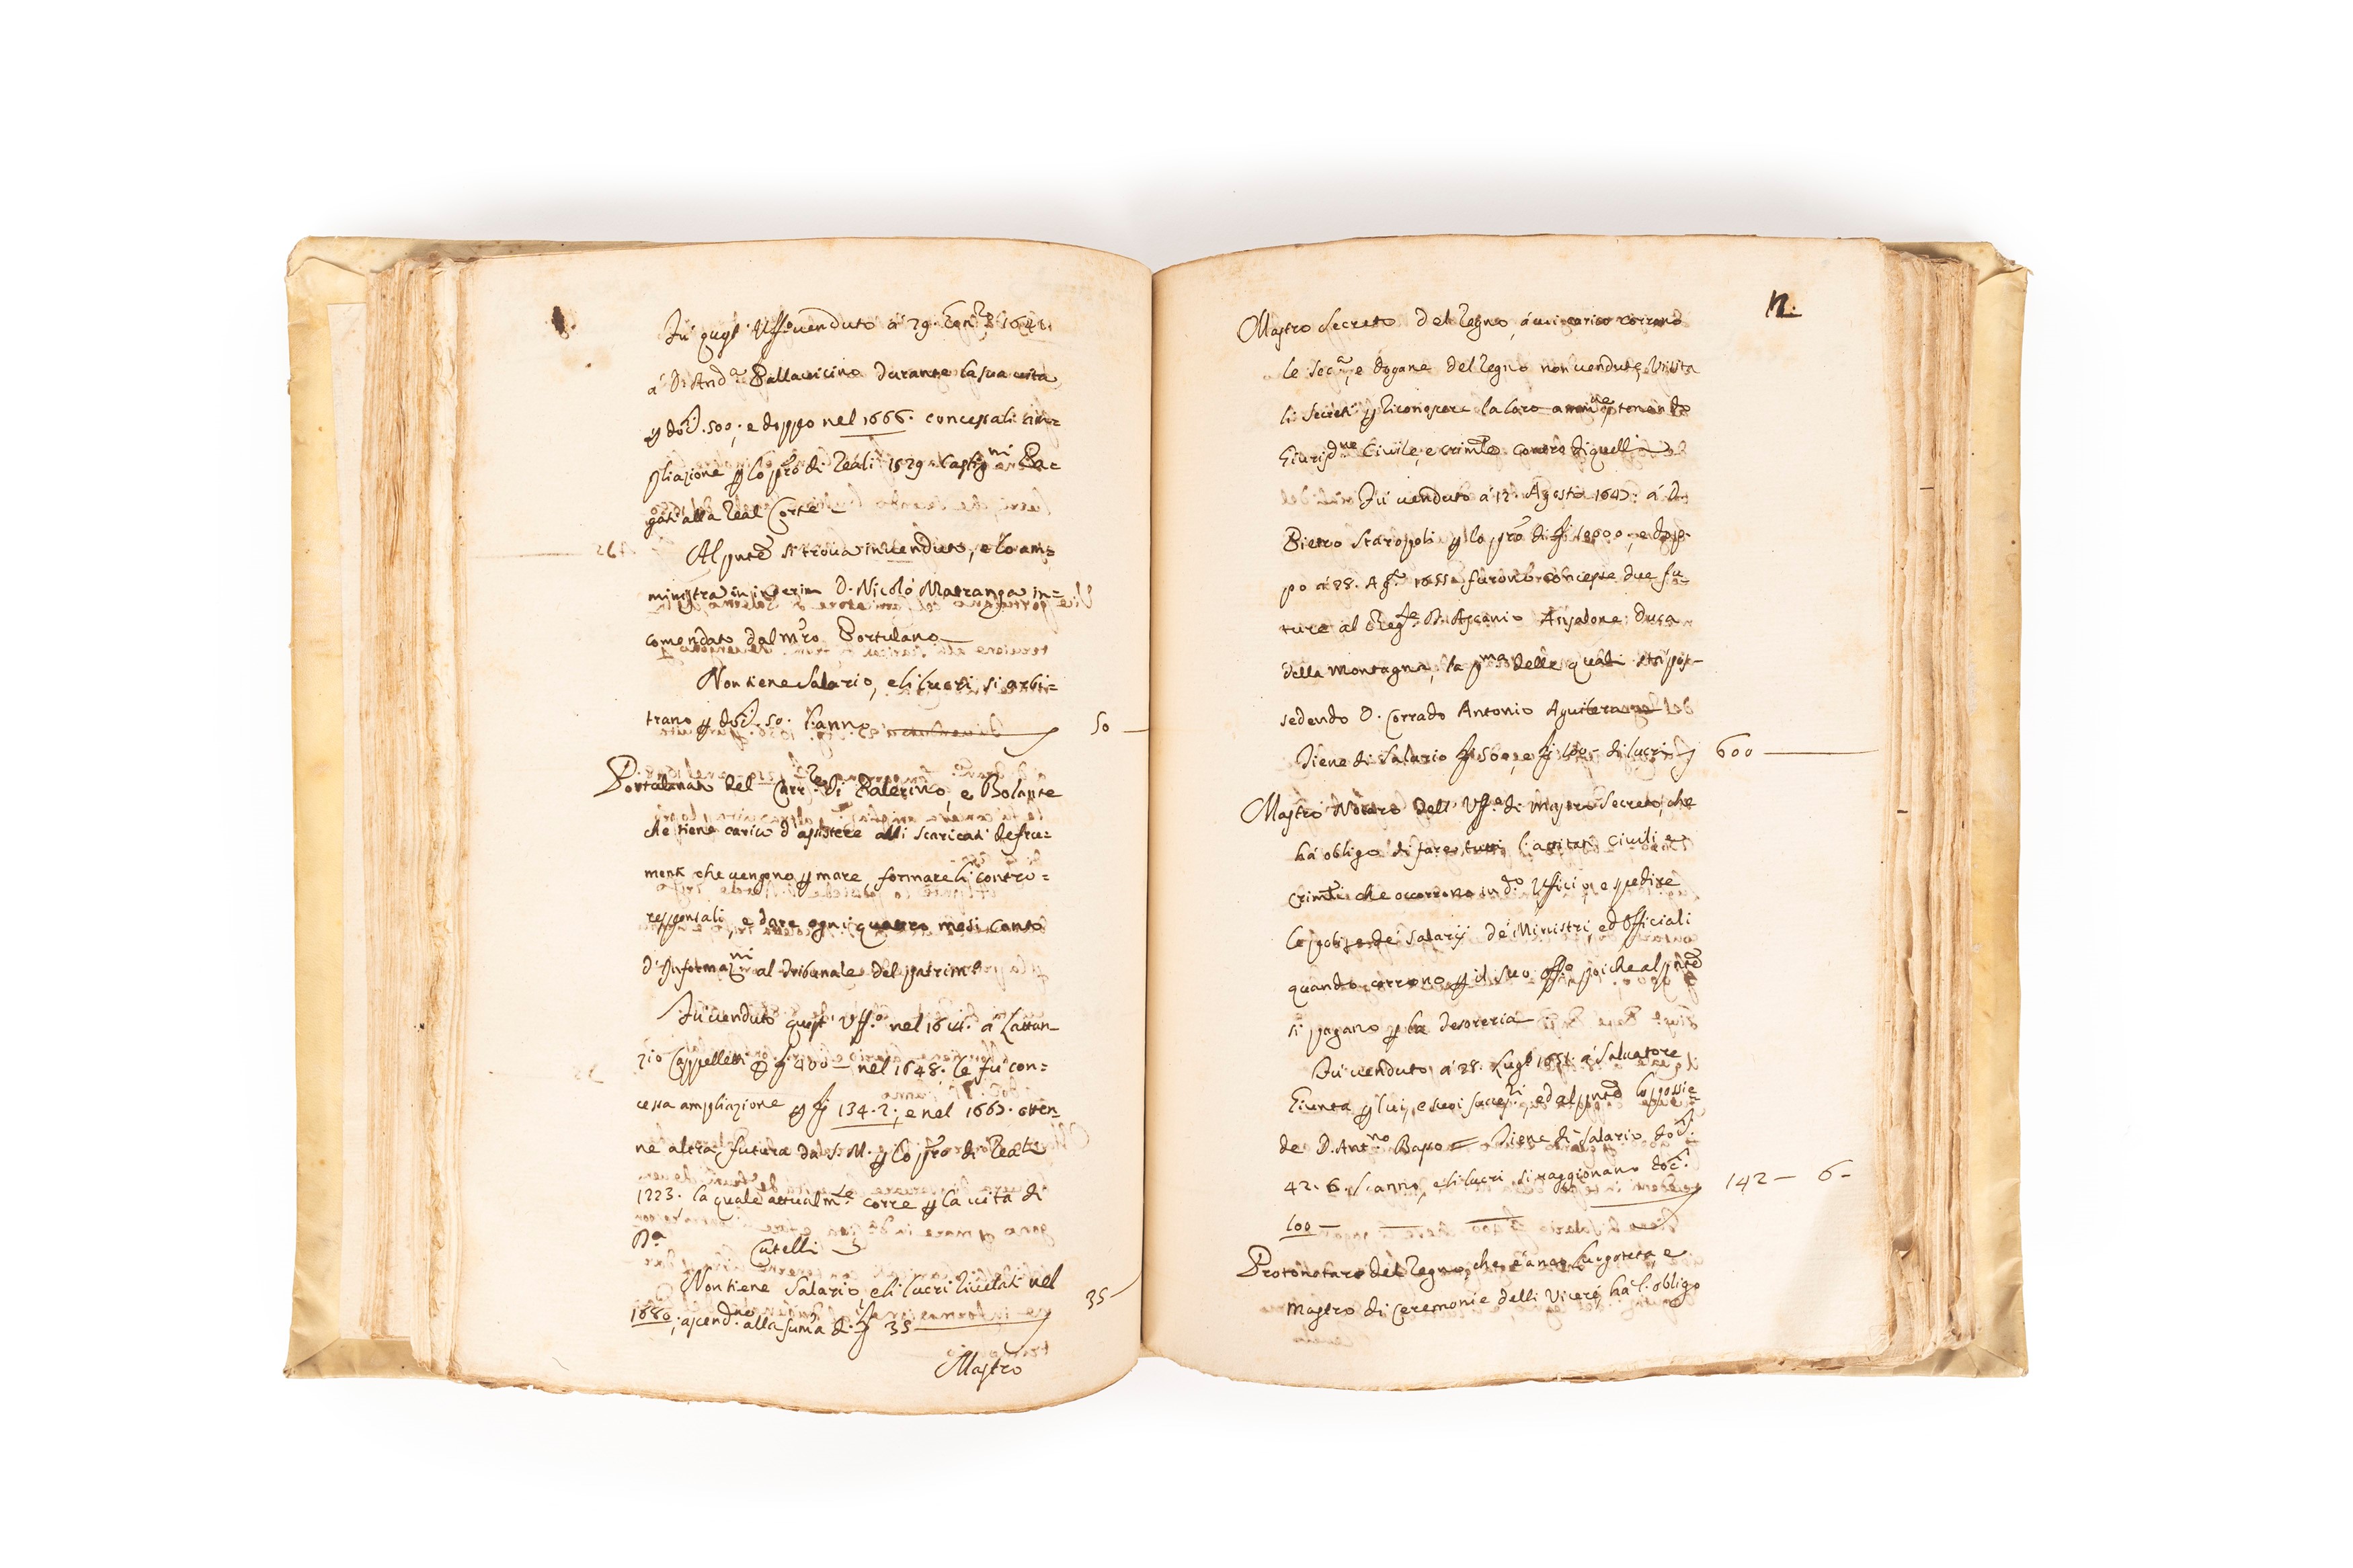 Fù quest' Uff.o uenduto à 29. Genn.o 1641.
à D. And.a Pallauicino durante la sua uita
doc. 500; e doppo nel 1666. concessali am=
pliazione p lo pro di Reali 1529 Castig.ni Pa=
gati alla Real Corte
Al pnte si troua inuenduto, e lo am=
ministra in interim D. Nicolò Matranga in=
comendato dal mro Portulano
Non tiene Salario, e li lucri si arbi=
trano p doc. 50. l'anno 50
Portulanato del Carr.re di Palermo, e Bolante
che tiene carico d'assistere alli scaricati de fru=
menti che uengono p mare formare li contro=
responsali, e dare ogni quattro mesi conto
d'Informaz.ni al Tribunale del patrim.o
Fù uenduto quest' Uff.o nel 1641. à Lattan=
zio Cappelletti p 400 nel 1648. le fù con=
cessa ampliazione p 134.2; e nel 1663. otten=
ne altra futura da S. M. p lo pro di Reali
1223. la quale attualm.te corre p la uita di
D.a Cutelli
Non tiene Salario, e li lucri liuellati nel
1680; ascend.no alla suma di 35 35
Mastro
12.
Mastro Secreto del Regno, à cui carico corrono
le Sec.e, e dogane del Regno non uendute, Uisita
li Secreti p riconoscere la loro amm.ne, tenendo
Giurisd.ne Ciuile, e crimle contro di quelli
Fù uenduto à 12. Agosto 1643. à D.
Pietro Staropoli p lo pro di 18000, e dop=
po à 28. Ag.to 1655 furono concesse due fu=
ture al Reg.te D. Ascanio Ansalone Duca
della Montagna, la p.ma delle quali stà pos=
sedendo D. Corrado Antonio Aguilera
Tiene di Salario 500, e 100 di lucri 600
Mastro Notaro dell' Uff.o di Mastro Secreto, che
hà obligo di fare tutti l'attitati Ciuili e
crimli che occorrono in d.o Officio, e spedire
le polise de' Salarij de' Ministri, ed Officiali
quando corrono p il suo off.o, poiche al pnte
si pagano p la Tesoreria
Fù uenduto à 28. Lugl.o 1651. à Saluatore
Giunta p lui, e suoi success.ri, ed al pnte lo possie=
de D. Ant.no Basso = Tiene di Salario doc.
42.6. l'anno, e li lucri si raggionano doc.
100 142 - 6 -
Protonotaro del Regno, che è anco Lugoteta, e
mastro di ceremonie delli Vicerè, hà l'obligo